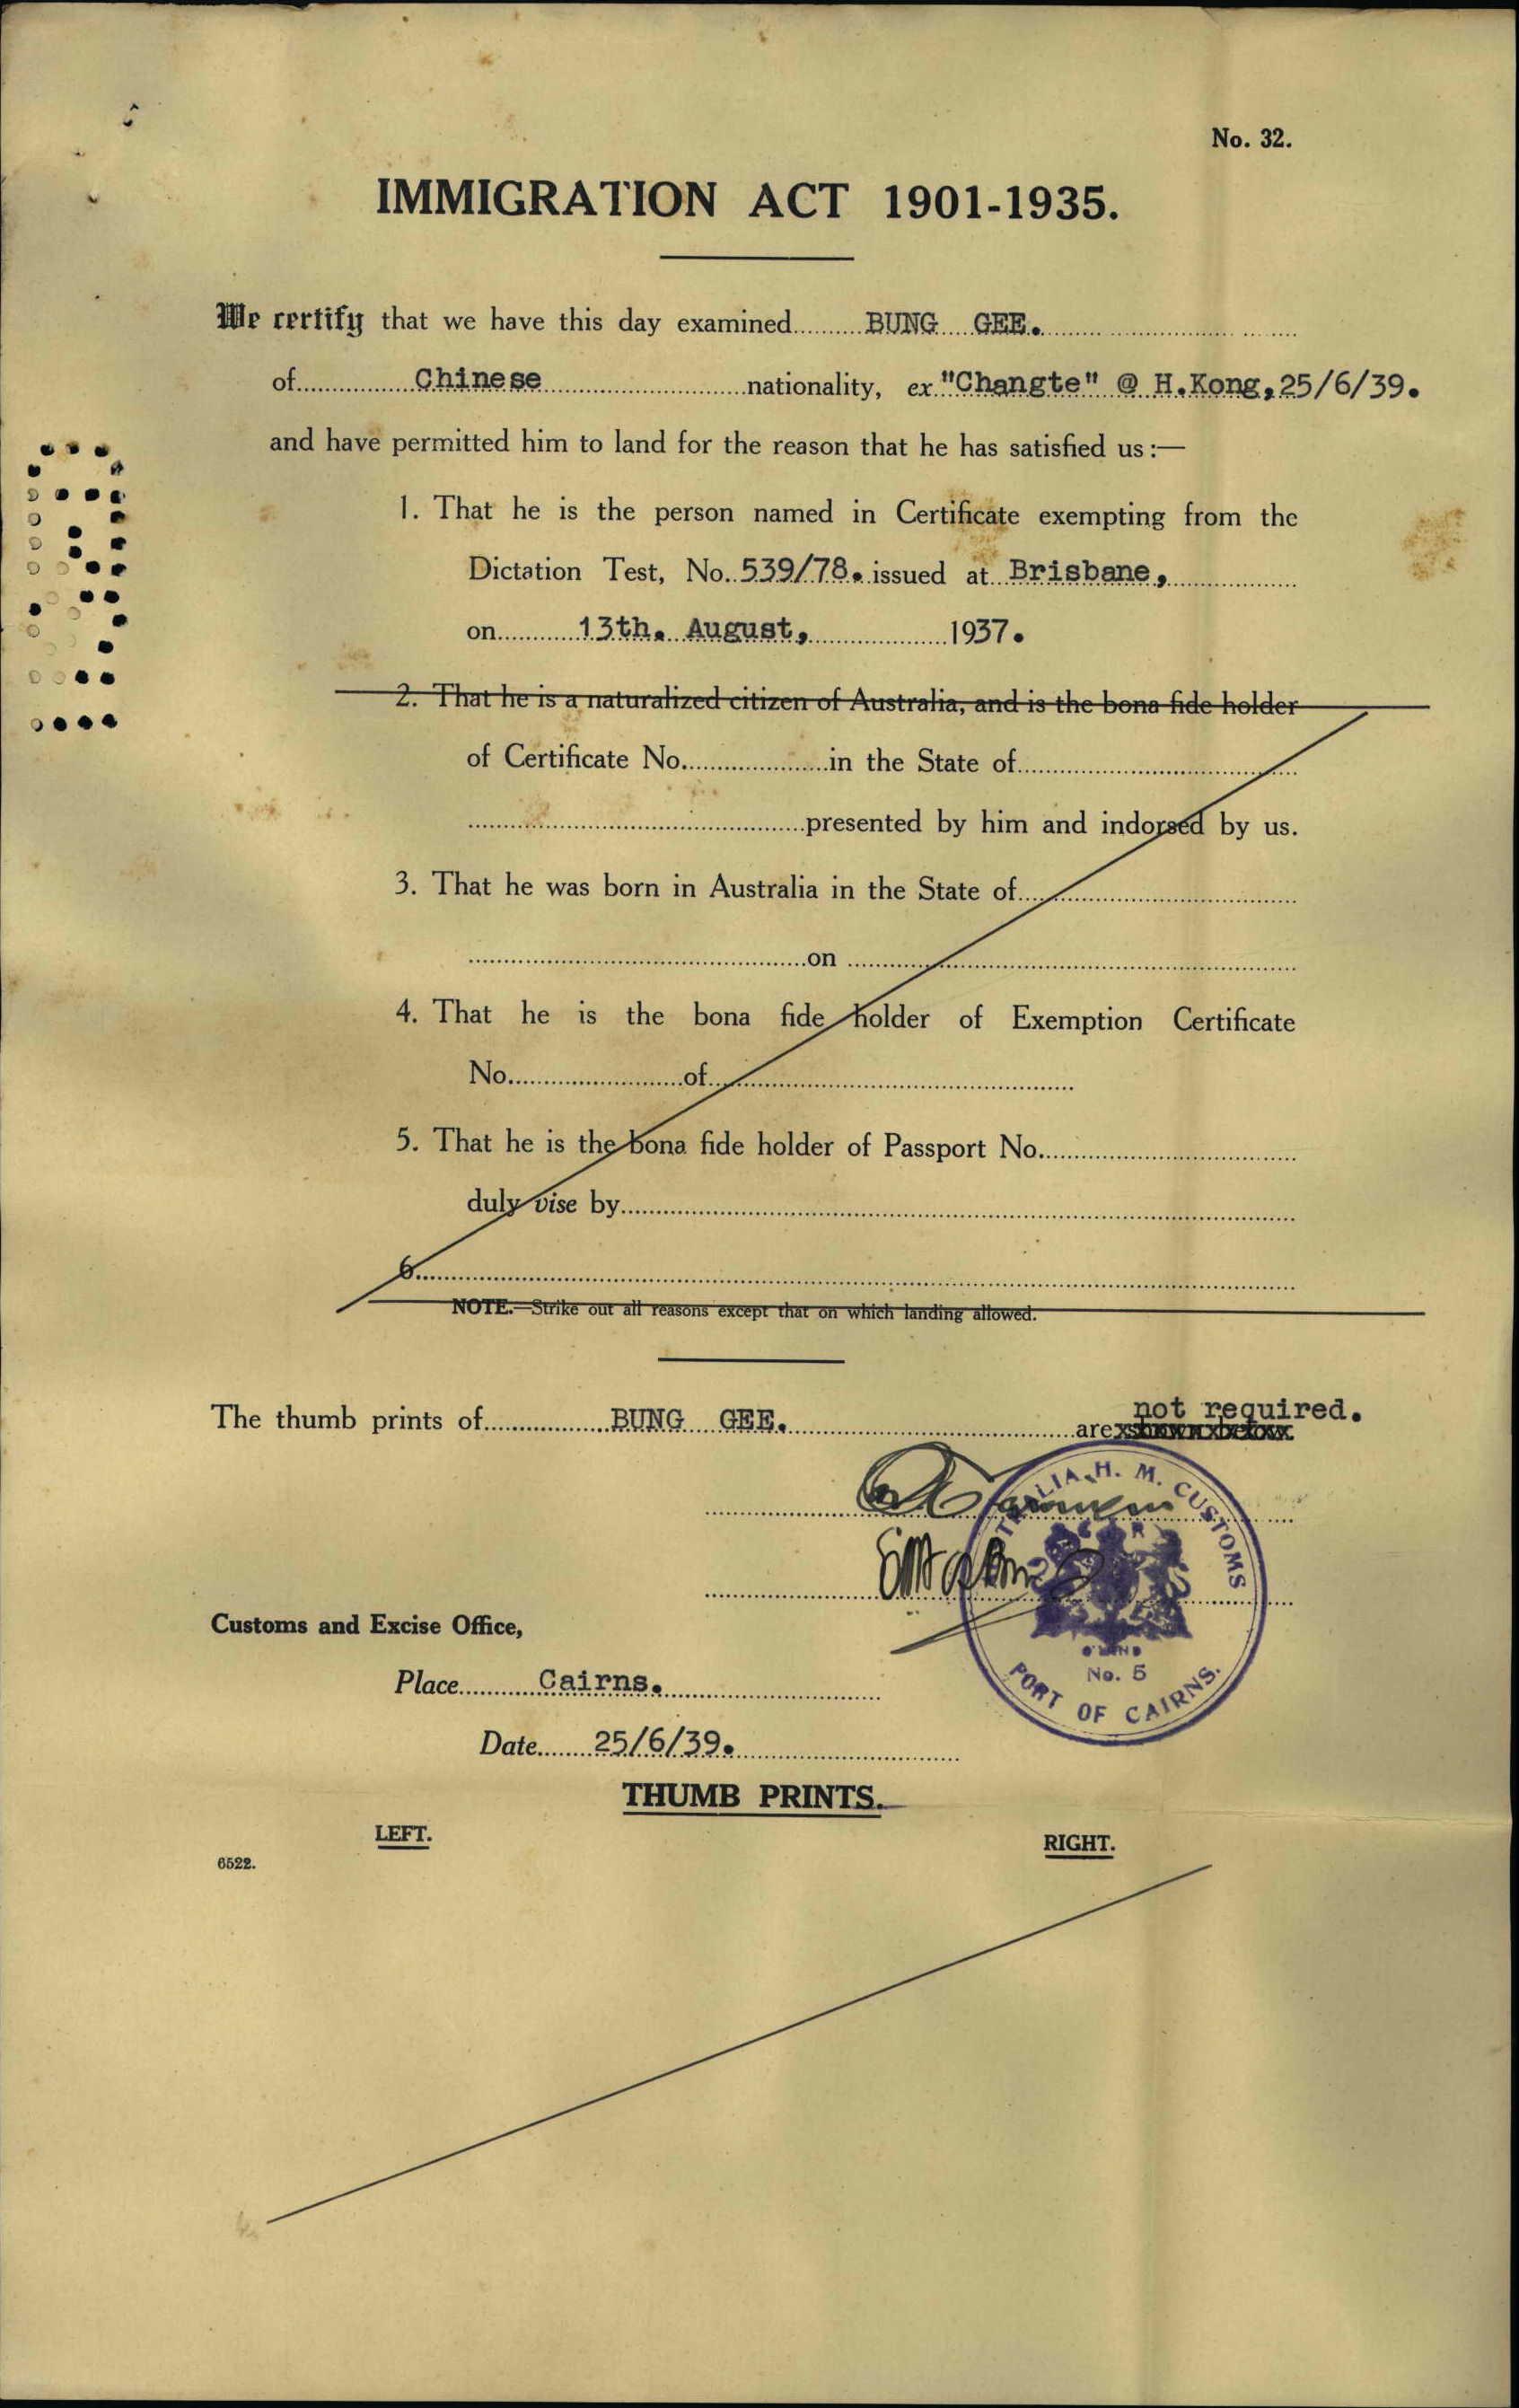 No. 32.
IMMIGRATION ACT 1901-1935.
We certify that we have this day examined BUNG GEE.
of Chinese nationality, ex "Changte" @ H.Kong, 25/6/39.
and have permitted him to land for the reason that he has satisfied us :—
1. That he is the person named in Certificate exempting from the
Dictation Test, No. 539/78. issued at Brisbane,
on 13th. August, 1937.
2. That he is a naturalized citizen of Australia, and is the bona fide holder
of Certificate No. in the State of
presented by him and indorsed by us.
3. That he was born in Australia in the State of
on
4. That he is the bona fide holder of Exemption Certificate
No. of
5. That he is the bona fide holder of Passport No.
duly vise by
6.
NOTE.—Strike out all reasons except that on which landing allowed.
not required.
The thumb prints of BUNG GEE. are
H. M. CUSTOMS
No. 5
PORT OF CAIRNS.
Customs and Excise Office,
Place Cairns.
Date 25/6/39.
THUMB PRINTS.
LEFT.
RIGHT.
6522.